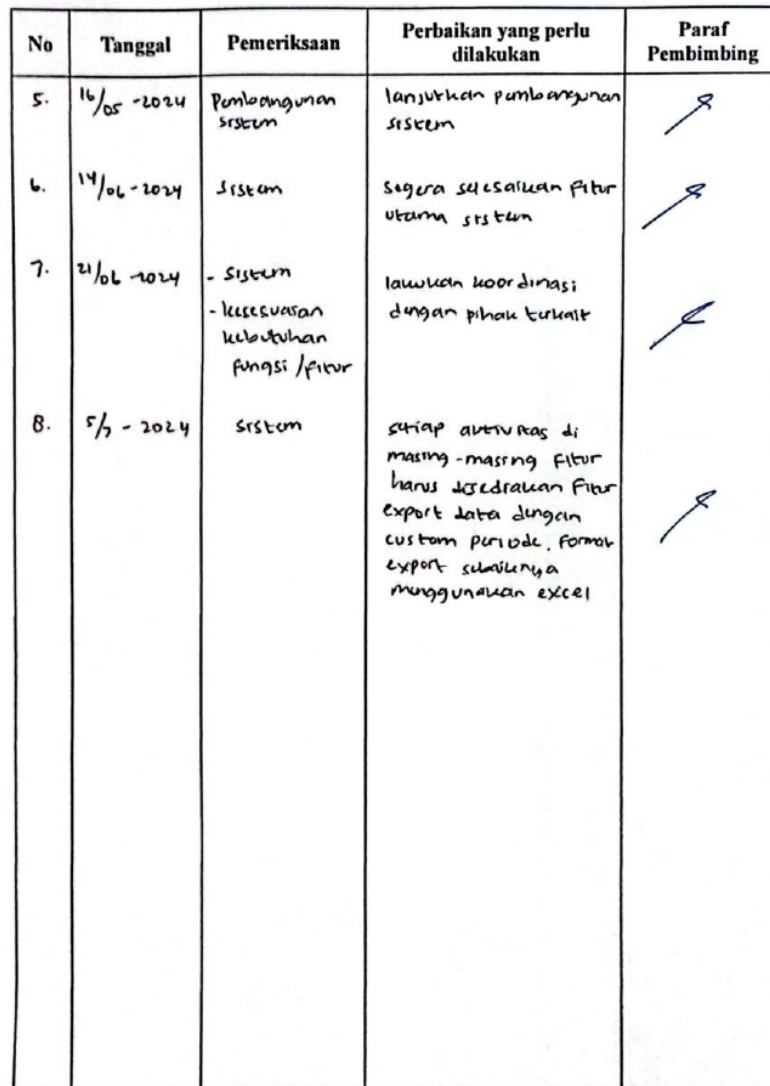 No Tanggal Pemeriksaan Perbaikan yang perlu dilakukan Paraf Pembimbing
5. 16/05-2024 Pembangunan lanjutkan pembangunan
sistem sistem
6. 14/06-2024 sistem segera selesaikan fitur
utama sistem
7. 21/06-2024 - sistem lakukan koordinasi
- kesesuaian dengan pihak terkait
kebutuhan
fungsi/fitur
8. 5/7-2024 sistem setiap aktivitas di
masing-masing fitur
harus disediakan fitur
export data dengan
custom periode. format
export sebaiknya
menggunakan excel